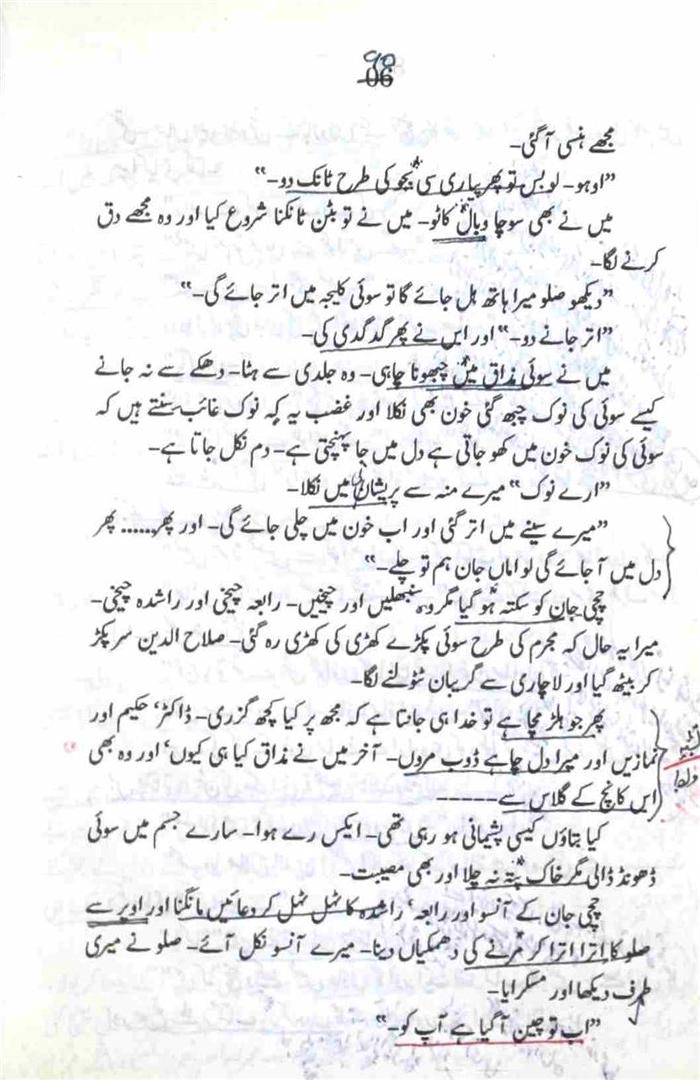 90
06
مجھے ہنسی آ گئی۔
”اوہو۔ لو بس تو پھر پیاری سی بجو کی طرح ٹانک دو۔“
میں نے بھی سوچا وبال کاٹو۔ میں نے تو بٹن ٹانکنا شروع کیا اور وہ مجھے دق
کرنے لگا۔
”دیکھو صلو میرا ہاتھ ہل جائے گا تو سوئی کلیجہ میں اتر جائے گی۔“
”اتر جانے دو۔“ اور اس نے پھر گدگدی کی۔
میں نے سوئی مذاق میں چبھونا چاہی۔ وہ جلدی سے ہٹا۔ دھکے سے نہ جانے
کیسے سوئی کی نوک چبھ گئی خون بھی نکلا اور غضب یہ کہ نوک غائب سنتے ہیں کہ
سوئی کی نوک خون میں کھو جاتی ہے دل میں جا پہنچتی ہے۔ دم نکل جاتا ہے۔
”ارے نوک“ میرے منہ سے پریشانی میں نکلا۔
”میرے سینے میں اتر گئی اور اب خون میں چلی جائے گی۔ اور پھر...... پھر
دل میں آ جائے گی لو اماں جان ہم تو چلے۔“
چچی جان کو سکتہ ہو گیا مگر وہ سنبھلیں اور چیخیں۔ رابعہ چیخی اور راشدہ چیخی۔
میرا یہ حال کہ مجرم کی طرح سوئی پکڑے کھڑی کی کھڑی رہ گئی۔ صلاح الدین سر پکڑ
کر بیٹھ گیا اور لاچاری سے گریبان ٹٹولنے لگا۔
پھر جو ہلڑ مچا ہے تو خدا ہی جانتا ہے کہ مجھ پر کیا کچھ گزری۔ ڈاکٹر، حکیم اور
نمازیں اور میرا دل چاہے ڈوب مروں۔ آخر میں نے مذاق کیا ہی کیوں، اور وہ بھی
اس کانچ کے گلاس سے -----
کیا بتاؤں کیسی پشیمانی ہو رہی تھی۔ ایکس رے ہوا۔ سارے جسم میں سوئی
ڈھونڈ ڈالی مگر خاک پتہ نہ چلا اور بھی مصیبت۔
چچی جان کے آنسو اور رابعہ، راشدہ کا ٹہل ٹہل کر دعائیں مانگنا اور اوپر سے
صلو کا اترا اترا کر مرنے کی دھمکیاں دینا۔ میرے آنسو نکل آئے۔ صلو نے میری
طرف دیکھا اور مسکرایا۔
”اب تو چین آ گیا ہے آپ کو۔“